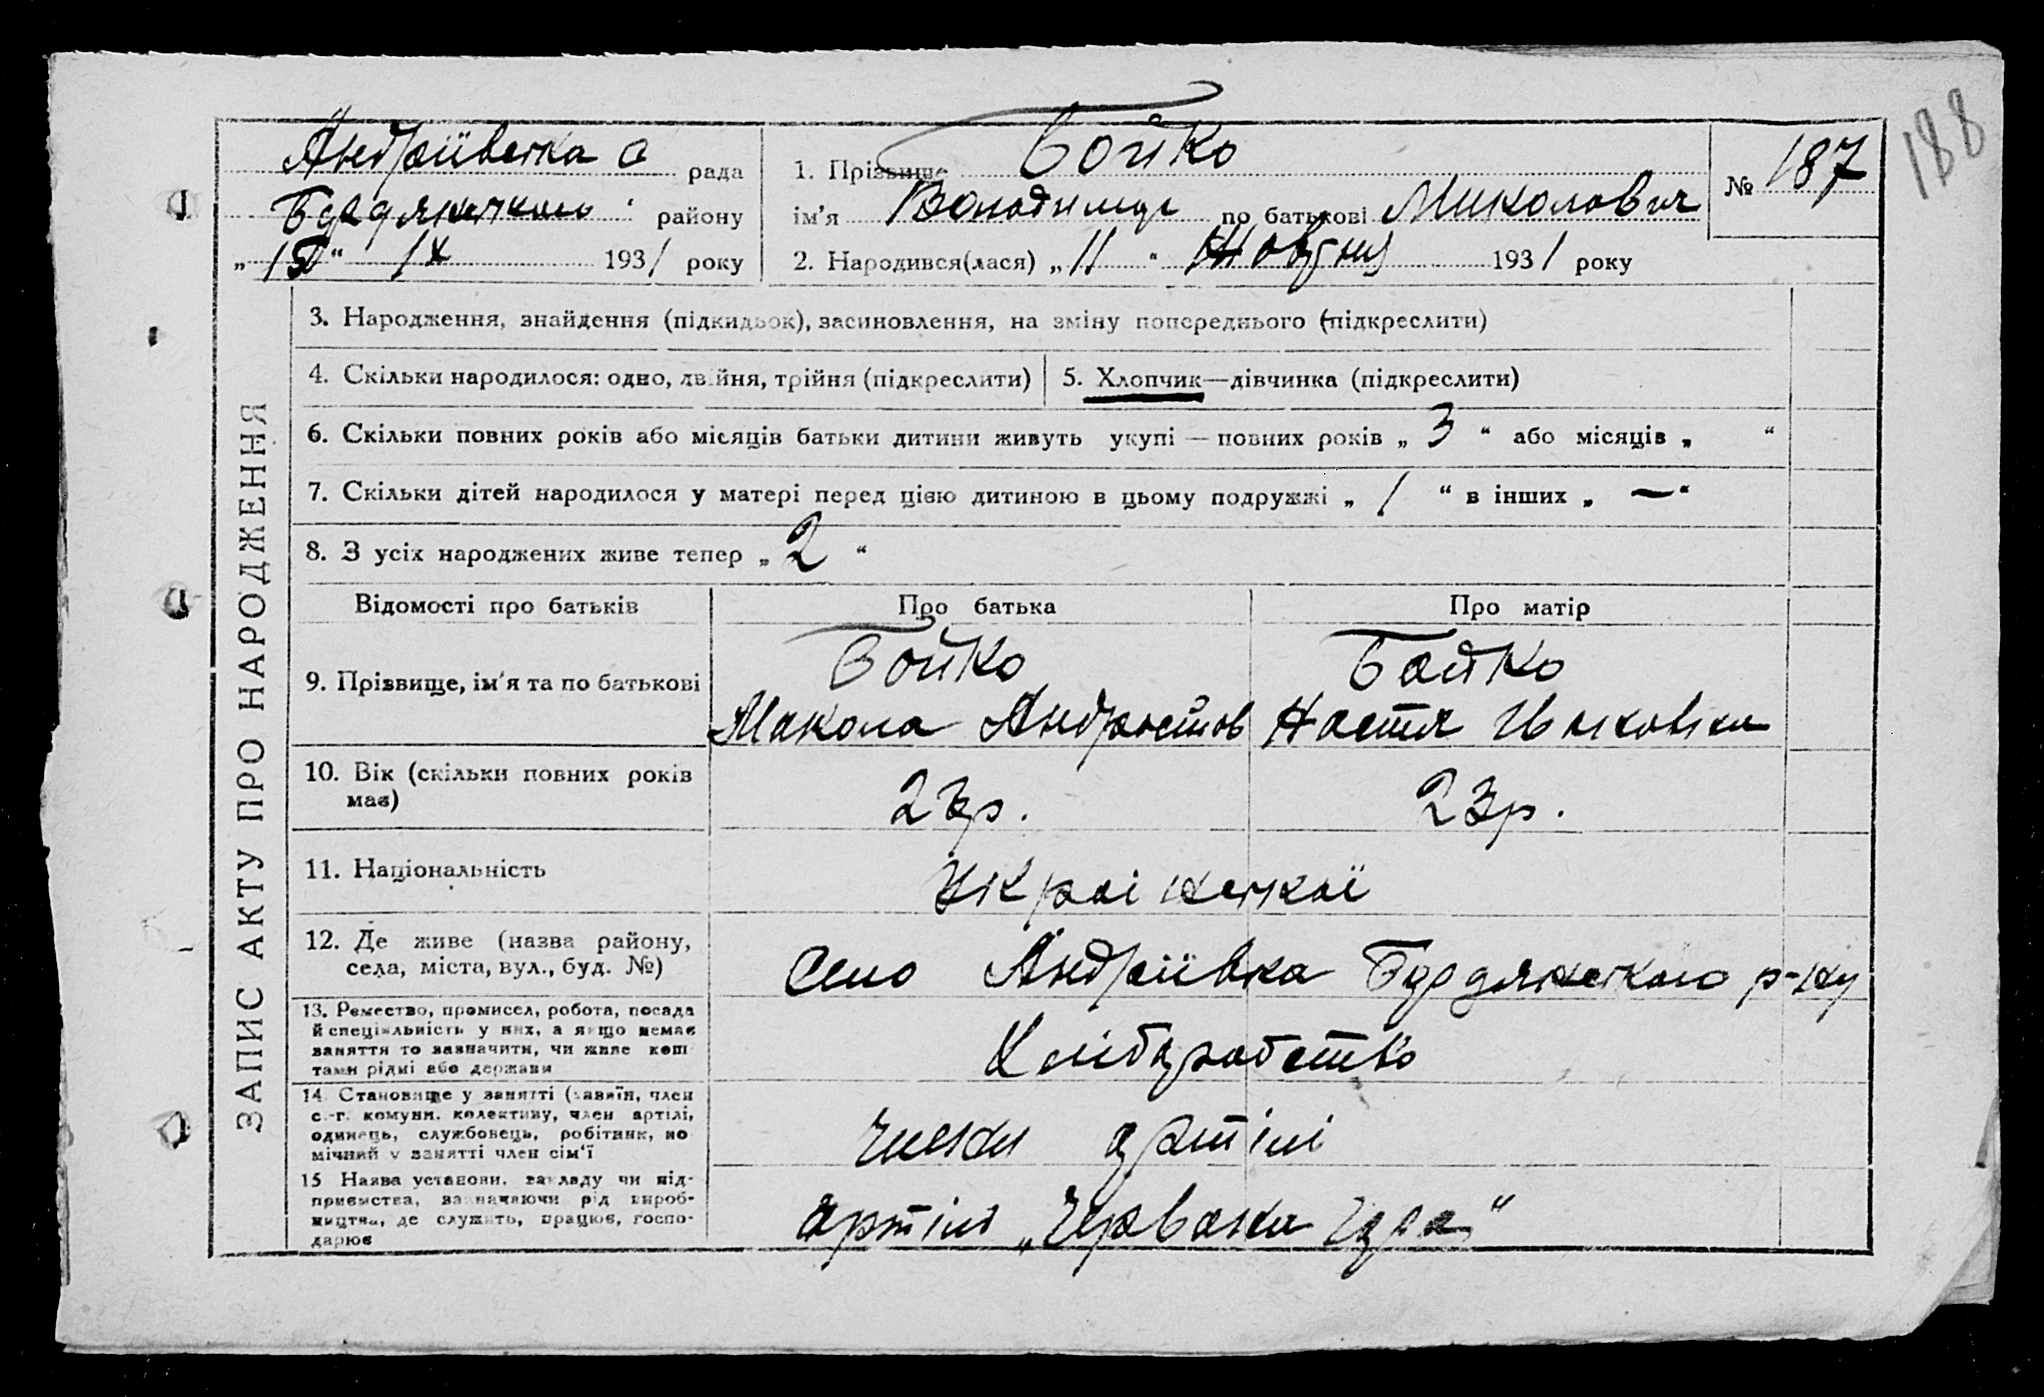 188
Андріївська с рада
Бердянського району
„15“ IX 1931 року
1. Прізвище Бойко
ім'я Володимир по батькові Миколович
№ 187
2. Народився(лася) „11“ Жовтня 1931 року
ЗАПИС АКТУ ПРО НАРОДЖЕННЯ
3. Народження, знайдення (підкидьок), засиновлення, на зміну попереднього (підкреслити)
4. Скільки народилося: одно, двійня, трійня (підкреслити)
5. Хлопчик—дівчинка (підкреслити)
6. Скільки повних років або місяців батьки дитини живуть укупі — повних років „3“ або місяців „ “
7. Скільки дітей народилося у матері перед цією дитиною в цьому подружжі „1“ в інших „—“
8. З усіх народжених живе тепер „2“
Відомості про батьків Про батька Про матір
9. Прізвище, ім'я та по батькові
Бойко Бойко
Микола Настя
10. Вік (скільки повних років
має)
23р. 23р.
11. Національність
Українскої
12. Де живе (назва району,
села, міста, вул., буд. №)
Село Андріівка Бердянского р-ну
13. Ремество, промисел, робота, посада
й спеціяльність у них, а якщо немає
заняття то зазначити, чи живе кош
тами рідні або держави
Хліборобство
14. Становище у занятті (хазяїн, член
с.-г. комуни, колективу, член артілі,
одинець, службовець, робітник, по
мічний у занятті член сім'ї
члени артілі
15 Назва установи, закладу чи під-
приємства, зазначаючи рід вироб-
ництва, де служить, працює, госпо-
дарює
артіль „Червона